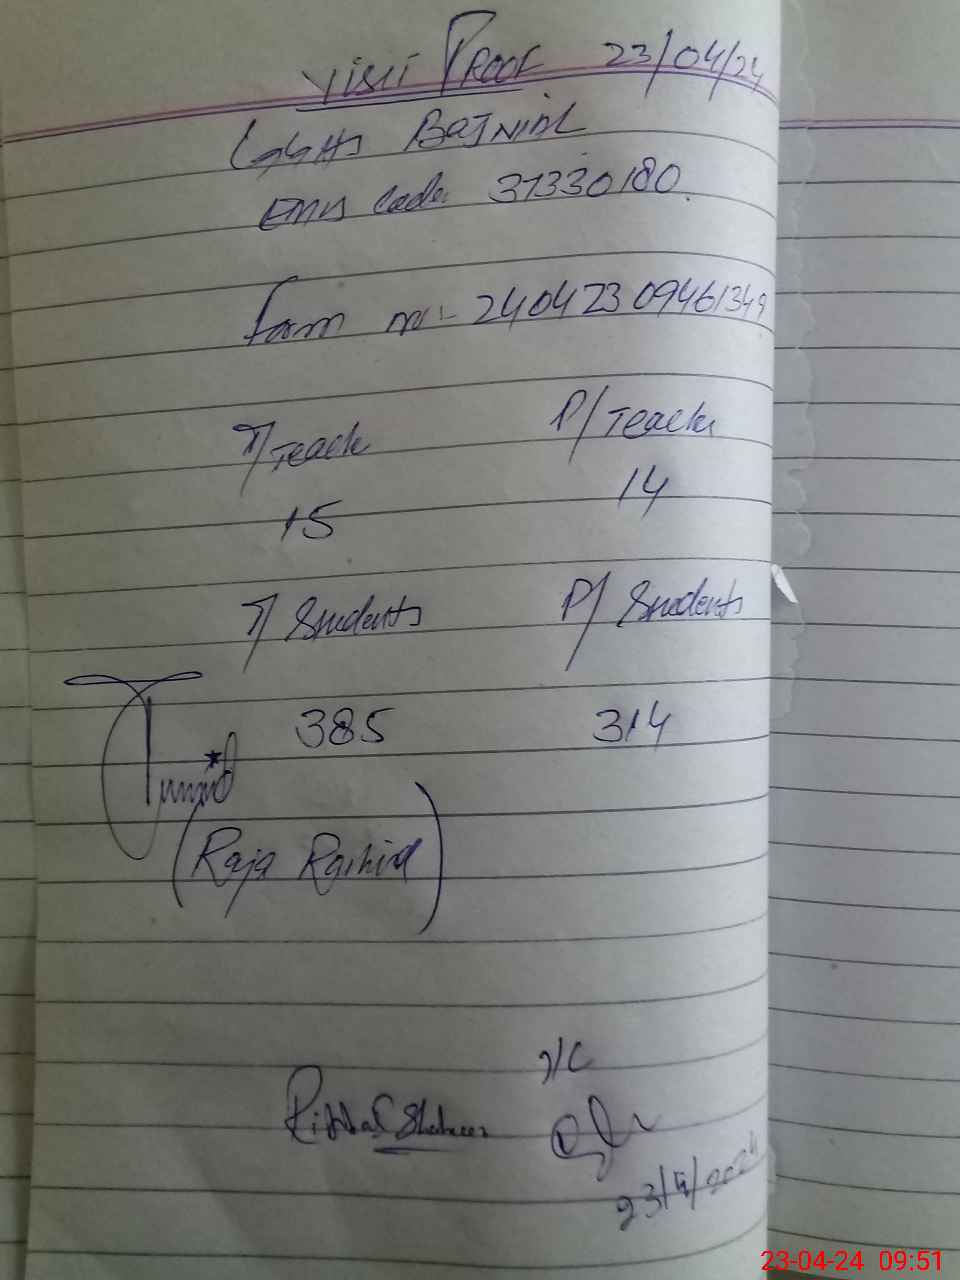 Visit Proof 23/04/24
GGHS BAJNIAL
EMIS Code: 37330180
Form no:- 24042309461349
T/Teach P/Teacher
15 14
T/Students P/Students
385 314
(Raja Rashid)
I/C
23/4/2024
23-04-24 09:51